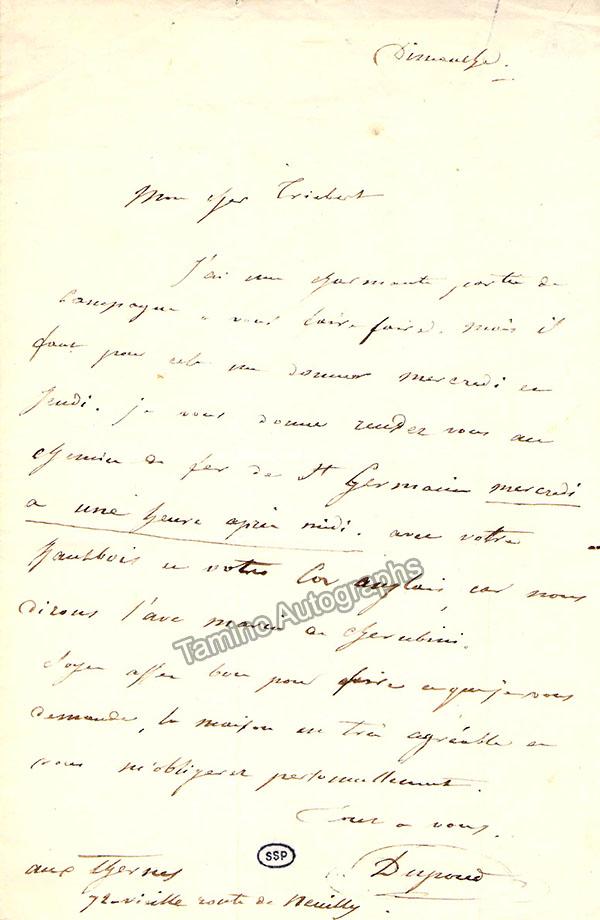 Dimanche.
Mon cher Triebert
J'ai une charmante partie de
campagne a vous faire faire. mais il
faut pour cela me donner mercredi et
Jeudi. je vous donne rendez vous au
chemin de fer de St Germain mercredi
a une heure après midi. avec votre
hautbois et votre Cor anglais, car nous
dirons l'ave maria de cherubini.
Soyez assez bon pour faire ce que je vous
demande, la maison est très agréable et
vous m'obligerez personnellement.
Tout a vous.
Dupond
aux Thernes
72 vieille route de Neuilly.
SSP
Tamino Autographs